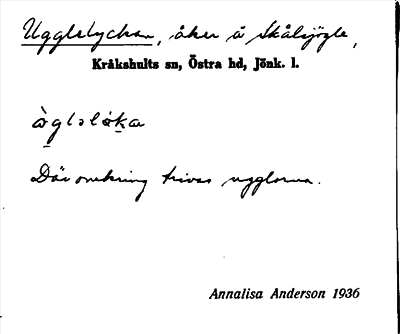 Ugglelyckan, åker å Skålsjögle,
Kråkshults sn, Östra hd, Jönk. l.
Där omkring trivas ugglorna.
Annalisa Anderson 1936